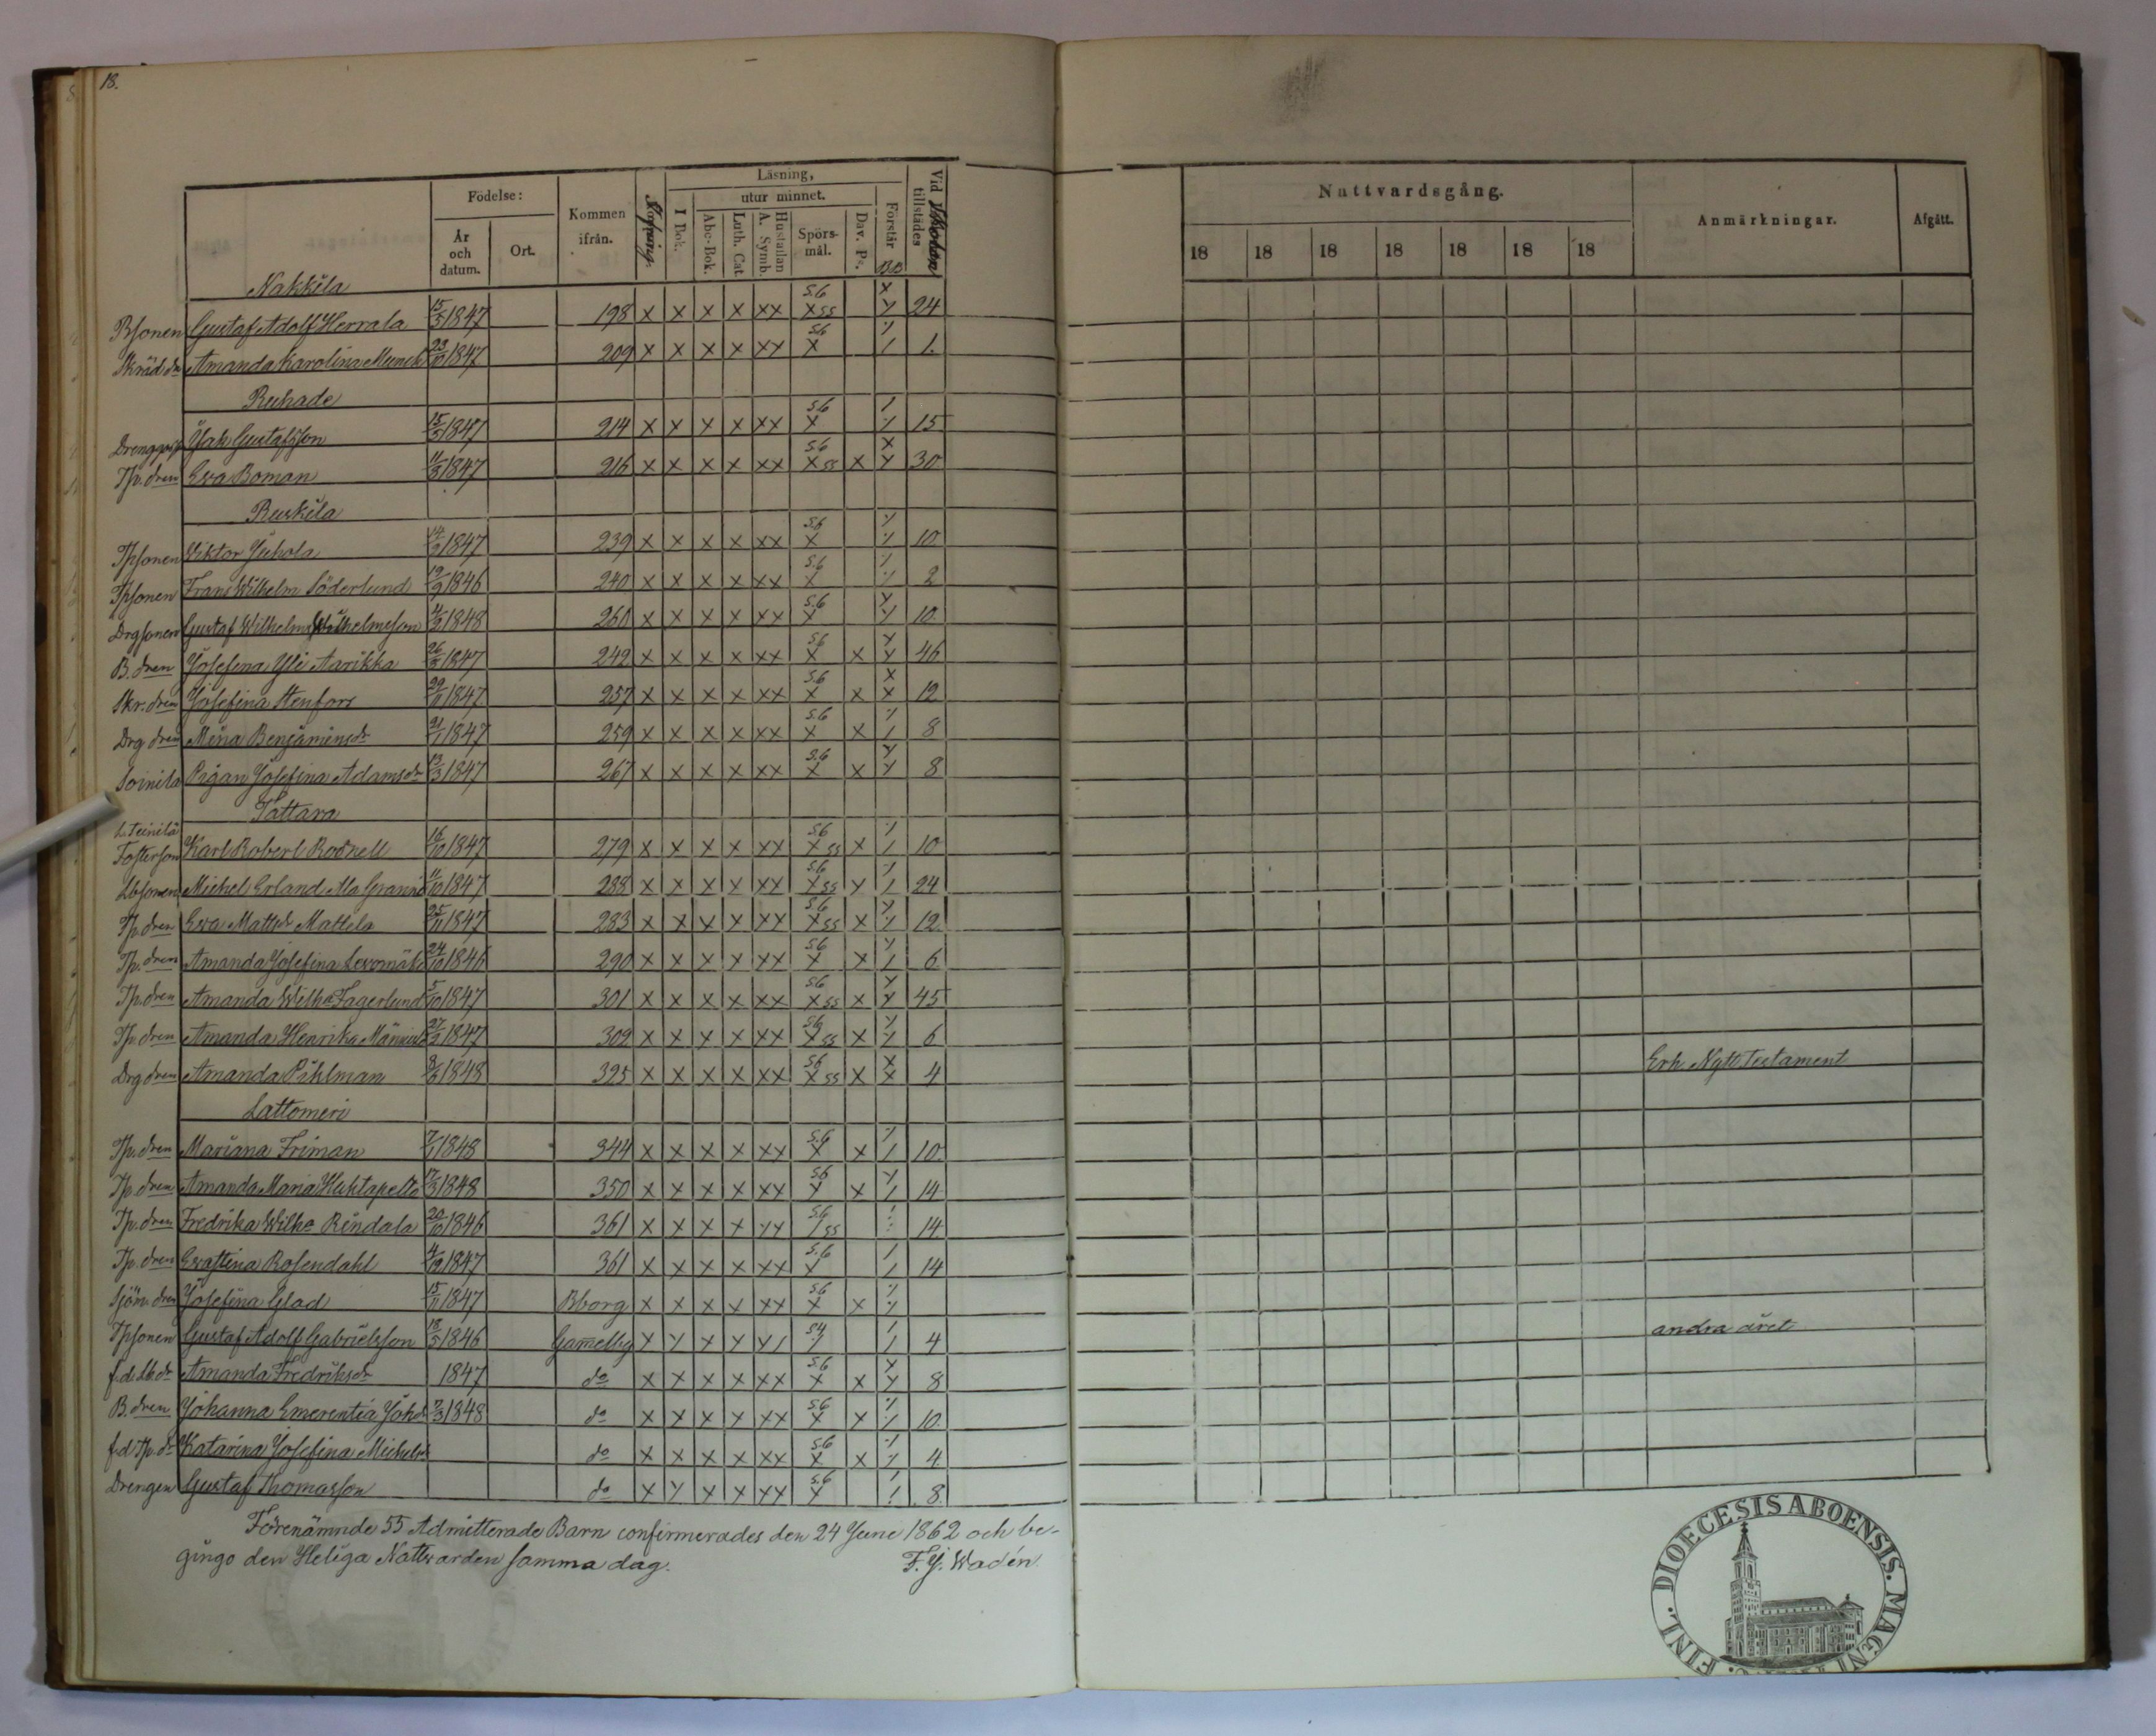 18.
Födelse:
År och datum.
Ort.
Kommen ifrån.
Stafning.
Läsning,
I Bok.
utur minnet.
Abc-Bok.
Luth. Cat.
Hustaflan A. Symb.
Spörsmål.
Dav. Ps.
Förstår
Vid Skolan tillstådes
Nattvardsgång.
18 18 18 18 18 18 18
Anmärkningar.
Afgått.
Nakkila
Bsonen Gustaf Adolf Herrala 15/5 1847 198 x x x x xx S.6 x ss 24
Skräd.dr Amanda Karolina Munck 23/10 1847 209 x x x x xx S6 x 1.
Ruhade
Isak Gustafsson 15/5 1847 214 x x x x xx S.6 x 15
Tp. dren Eva Boman 11/3 1847 216 x x x x xx S.6 x ss x 30
Ruskila
Tpsonen Viktor Juhola 1847 239 x x x x xx S.6 x 10
Tpsonen Frans Wilhelm Söderlund 19/9 1846 240 x x x x xx S.6 x 2
Drgsonen Gustaf Wilhelm Wilhelmsson 4/5 1848 260 x x x x xx S.6 x 10.
B. dren Josefina Yli Aarikka 26/3 1847 242 x x x x xx S6 x x 46
Skr. dren Josefina Stenfors 29/11 1847 257 x x x x xx S.6 x x 12
Drg dren Mina Benjaminsdr 21/1 1847 259 x x x x xx S.6 x x 8
Soinila Pigan Josefina Adamsdr 13/3 1847 267 x x x x xx S.6 x x 8
Tattara
Fosterson Karl Robert Rodnell 16/10 1847 279 x x x x xx S6 x ss x 10
Lbsonen Michel Erland Ala Granni 11/10 1847 288 x x x x xx S.6 x ss x 24
Tp. dren Eva Mattsdr Mattila 25/11 1847 283 x x x x xx S6 x ss x 12.
Tp. dren Amanda Josefina Levomäki 24/10 1846 290 x x x x xx S6 x x 6
Tp. dren Amanda Wilha Fagerlund 5/10 1847 301 x x x x xx S6 x ss x 45
Tp. dren Amanda Henrika 27/9 1847 309 x x x x xx S6 x ss x 6
Drg dren Amanda Pihlman 8/6 1848 325 x x x x xx S6 x ss x x 4 Erh. Nytt Testament
Lattomeri
Tp. dren Mariana Friman 7/1 1848 344 x x x x xx S.6 x x 10.
Tp. dren Amanda Maria Huhtapelto 17/3 1848 350 x x x x xx S6 x x 14
Tp. dren Fredrika Wilha Rindala 20/10 1846 361 x x x x xx S.6 ss 14
Tp. dren Evastina Rosendahl 4/12 1847 361 x x x x xx S.6 x 14
Sjöm. dren Josefina Glad 15/11 1847 Bborg x x x x xx S6 x x
Tpsonen Gustaf Adolf Gabrielsson 18/5 1846 Gamelbg x x x x x/ S4 4 andra året
f.d. Lb dr Amanda Fredriksdr 1847 do x x x x xx S.6 x x 8
B. dren Johanna Emerentia Johdr 7/3 1848 do x x x x xx S6 x x 10.
f.d Tp. dr Katarina Josefina Michelsdr do x x x x xx S.6 x x 4
Drengen Gustaf Thomasson do x x x x xx S.6 x 8.
Förenämnde 55 Admitterade Barn confirmerades den 24 June 1862 och be-
gingo den Heliga Nattvarden samma dag. F. J. Wadén.
FINL. DIOECESIS ABOENSIS. MAGNI